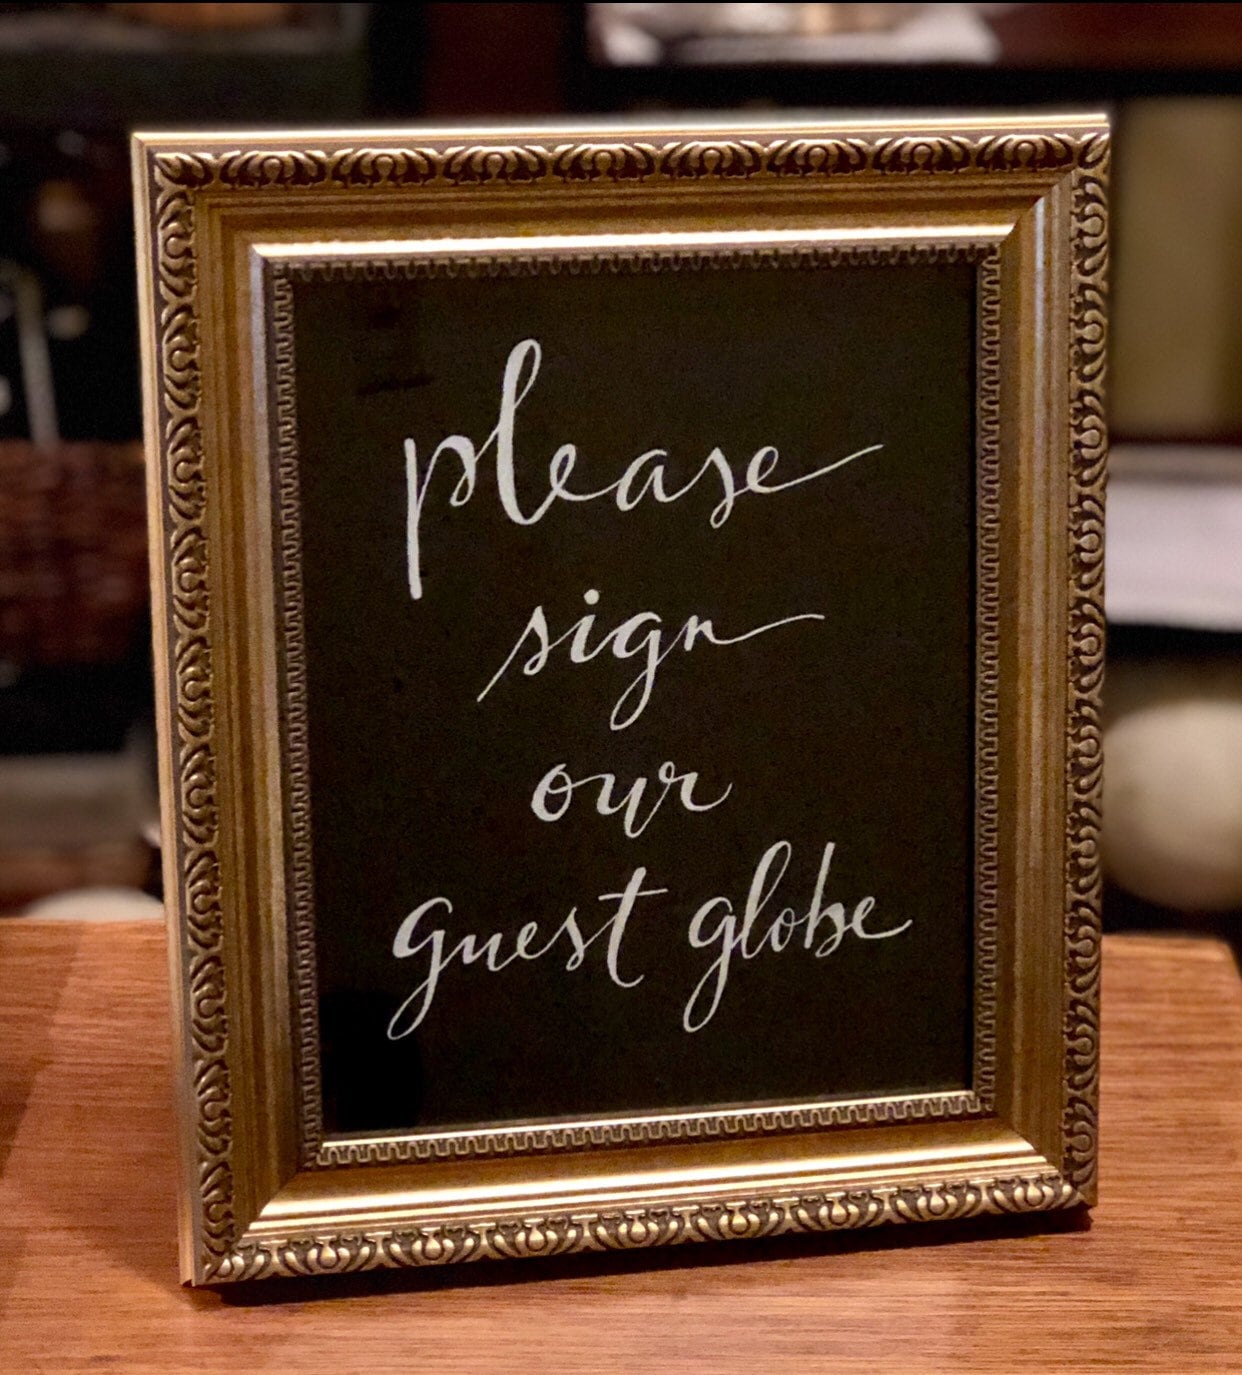 please
sign
our
guest globe